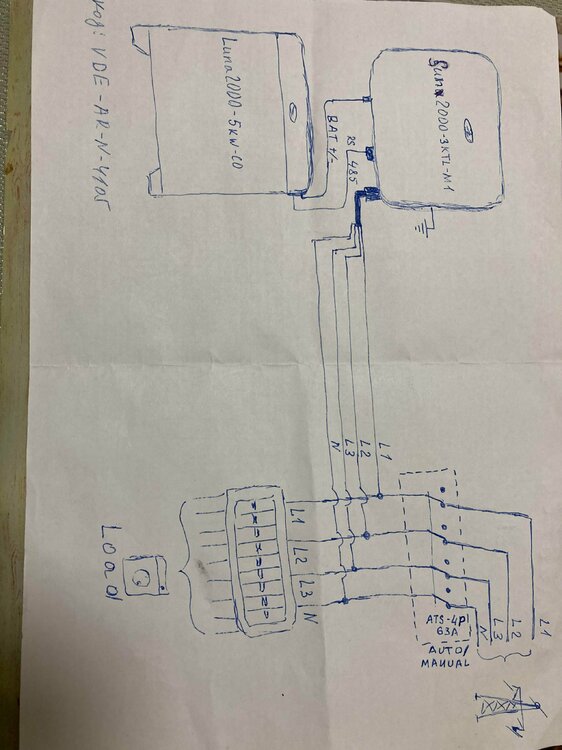 Luna2000-5kw-C0
Sun2000-3KTL-M1
BAT +/-
RS 485
код: VDE-AR-N-4105
L1
L2
L3
N
L1
L2
L3
N
ATS-4P
63A
AUTO/
MANUAL
L1
L2
L3
N
Load